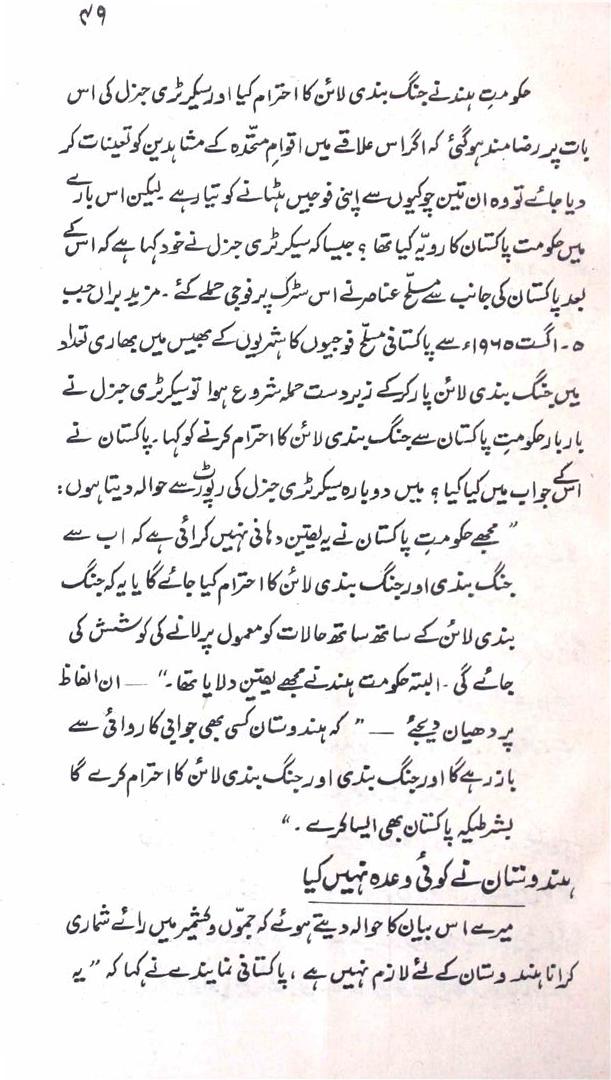 ۴۹
حکومتِ ہند نے جنگ بندی لائن کا احترام کیا اور سیکرٹری جنرل کی اس
بات پر رضامند ہوگئی کہ اگر اس علاقے میں اقوامِ متحدہ کے مشاہدین کو تعینات کر
دیا جائے تو وہ ان تین چوکیوں سے اپنی فوجیں ہٹانے کو تیار ہے لیکن اس بارے
میں حکومت پاکستان کا رویّہ کیا تھا ؟ جیسا کہ سیکرٹری جنرل نے خود کہا ہے کہ اس کے
بعد پاکستان کی جانب سے مسلّح عناصر نے اس سڑک پر فوجی حملے کئے ۔ مزید براں جب
۵۔ اگست ۱۹۶۵ء سے پاکستانی مسلّح فوجیوں کا شہریوں کے بھیس میں بھاری تعداد
میں جنگ بندی لائن پار کرکے زبردست حملہ شروع ہوا تو سیکرٹری جنرل نے
بار بار حکومتِ پاکستان سے جنگ بندی لائن کا احترام کرنے کو کہا ۔ پاکستان نے
اس کے جواب میں کیا کیا ؟ میں دوبارہ سیکرٹری جنرل کی رپورٹ سے حوالہ دیتا ہوں :
” مجھے حکومتِ پاکستان نے یہ یقین دہانی نہیں کرائی ہے کہ اب سے
جنگ بندی اور جنگ بندی لائن کا احترام کیا جائے گا یا یہ کہ جنگ
بندی لائن کے ساتھ ساتھ حالات کو معمول پر لانے کی کوشش کی
جائے گی ۔ البتہ حکومت ہند نے مجھے یقین دلایا تھا ۔“ — ان الفاظ
پر دھیان دیجئے — ” کہ ہندوستان کسی بھی جوابی کاروائی سے
باز رہے گا اور جنگ بندی اور جنگ بندی لائن کا احترام کرے گا
بشرطیکہ پاکستان بھی ایسا کرے ۔“
ہندوستان نے کوئی وعدہ نہیں کیا
میرے اس بیان کا حوالہ دیتے ہوئے کہ جموّں و کشمیر میں رائے شماری
کرانا ہندوستان کے لئے لازم نہیں ہے ، پاکستانی نمایندے نے کہا کہ ” یہ